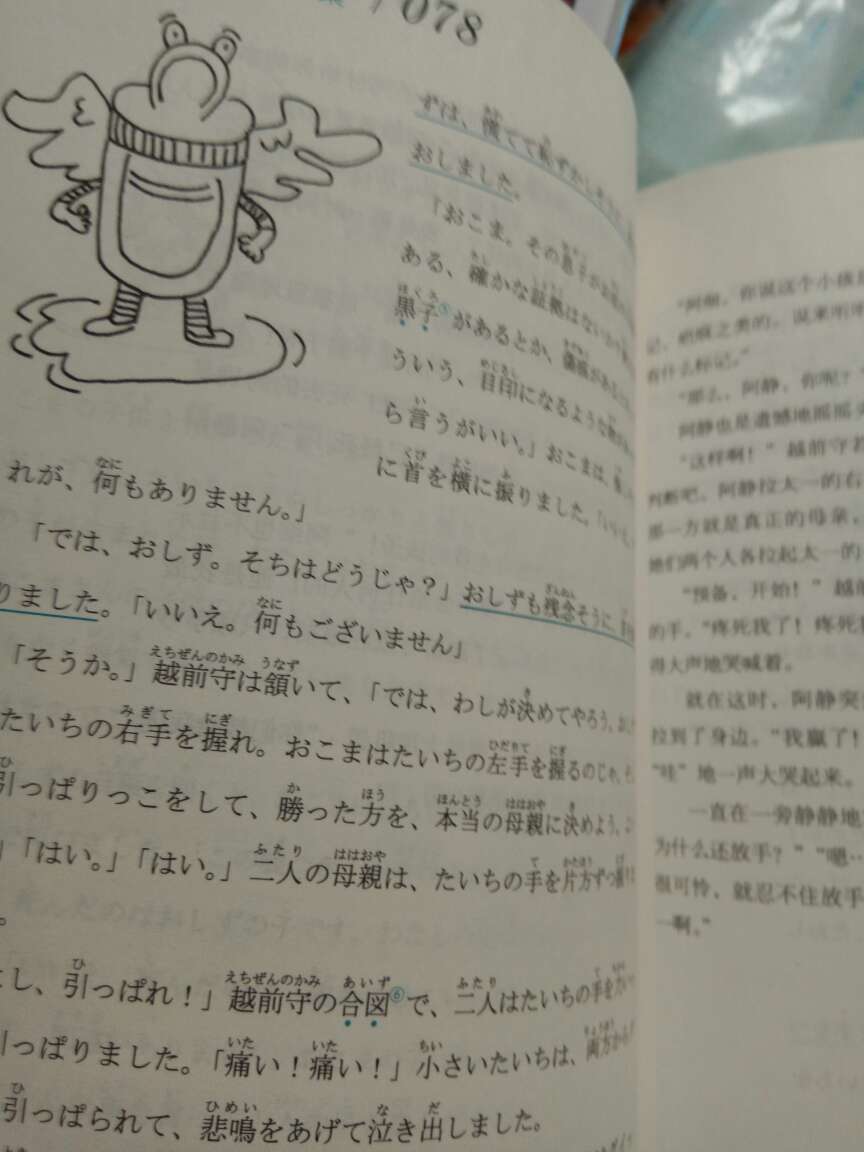 /078
ずは、慌てて
おしました。
「おこま。その息子が
ある、確かな証拠はないか
黒子⑤があるとか、傷痕が
ういう、目印になるような
ら言うがいい。」おこまは、
に首を横に振りました。「いいえ
れが、何もありません。」
「では、おしず。そちはどうじゃ？」おしずも残念そうに、
りました。「いいえ。何もございません」
「そうか。」越前守は頷いて、「では、わしが決めてやろう。
たいちの右手を握れ。おこまはたいちの左手を握るのじゃ。
引っぱりっこをして、勝った方を、本当の母親に決めよう。
」「はい。」「はい。」二人の母親は、たいちの手を片方ずつ
。
し、引っぱれ！」越前守の合図⑥で、二人はたいちの手を
っぱりました。「痛い！痛い！」小さいたいちは、両方から
引っぱられて、悲鳴をあげて泣き出しました。
“阿细，你说这个小孩
记、疤痕之类的，说来听
有什么标记。”
“那么，阿静，你呢？”
阿静也是遗憾地摇摇
“这样啊！”越前守若
判断吧。阿静拉太一的右
那一方就是真正的母亲，
她们两个人各拉起太一的
“预备，开始！”越
的手。“疼死我了！疼死
得大声地哭喊着。
就在这时，阿静突
拉到了身边。“我赢了！
“哇”地一声大哭起来。
一直在一旁静静地
为什么还放手？”“嗯…
很可怜，就忍不住放手
一啊。”